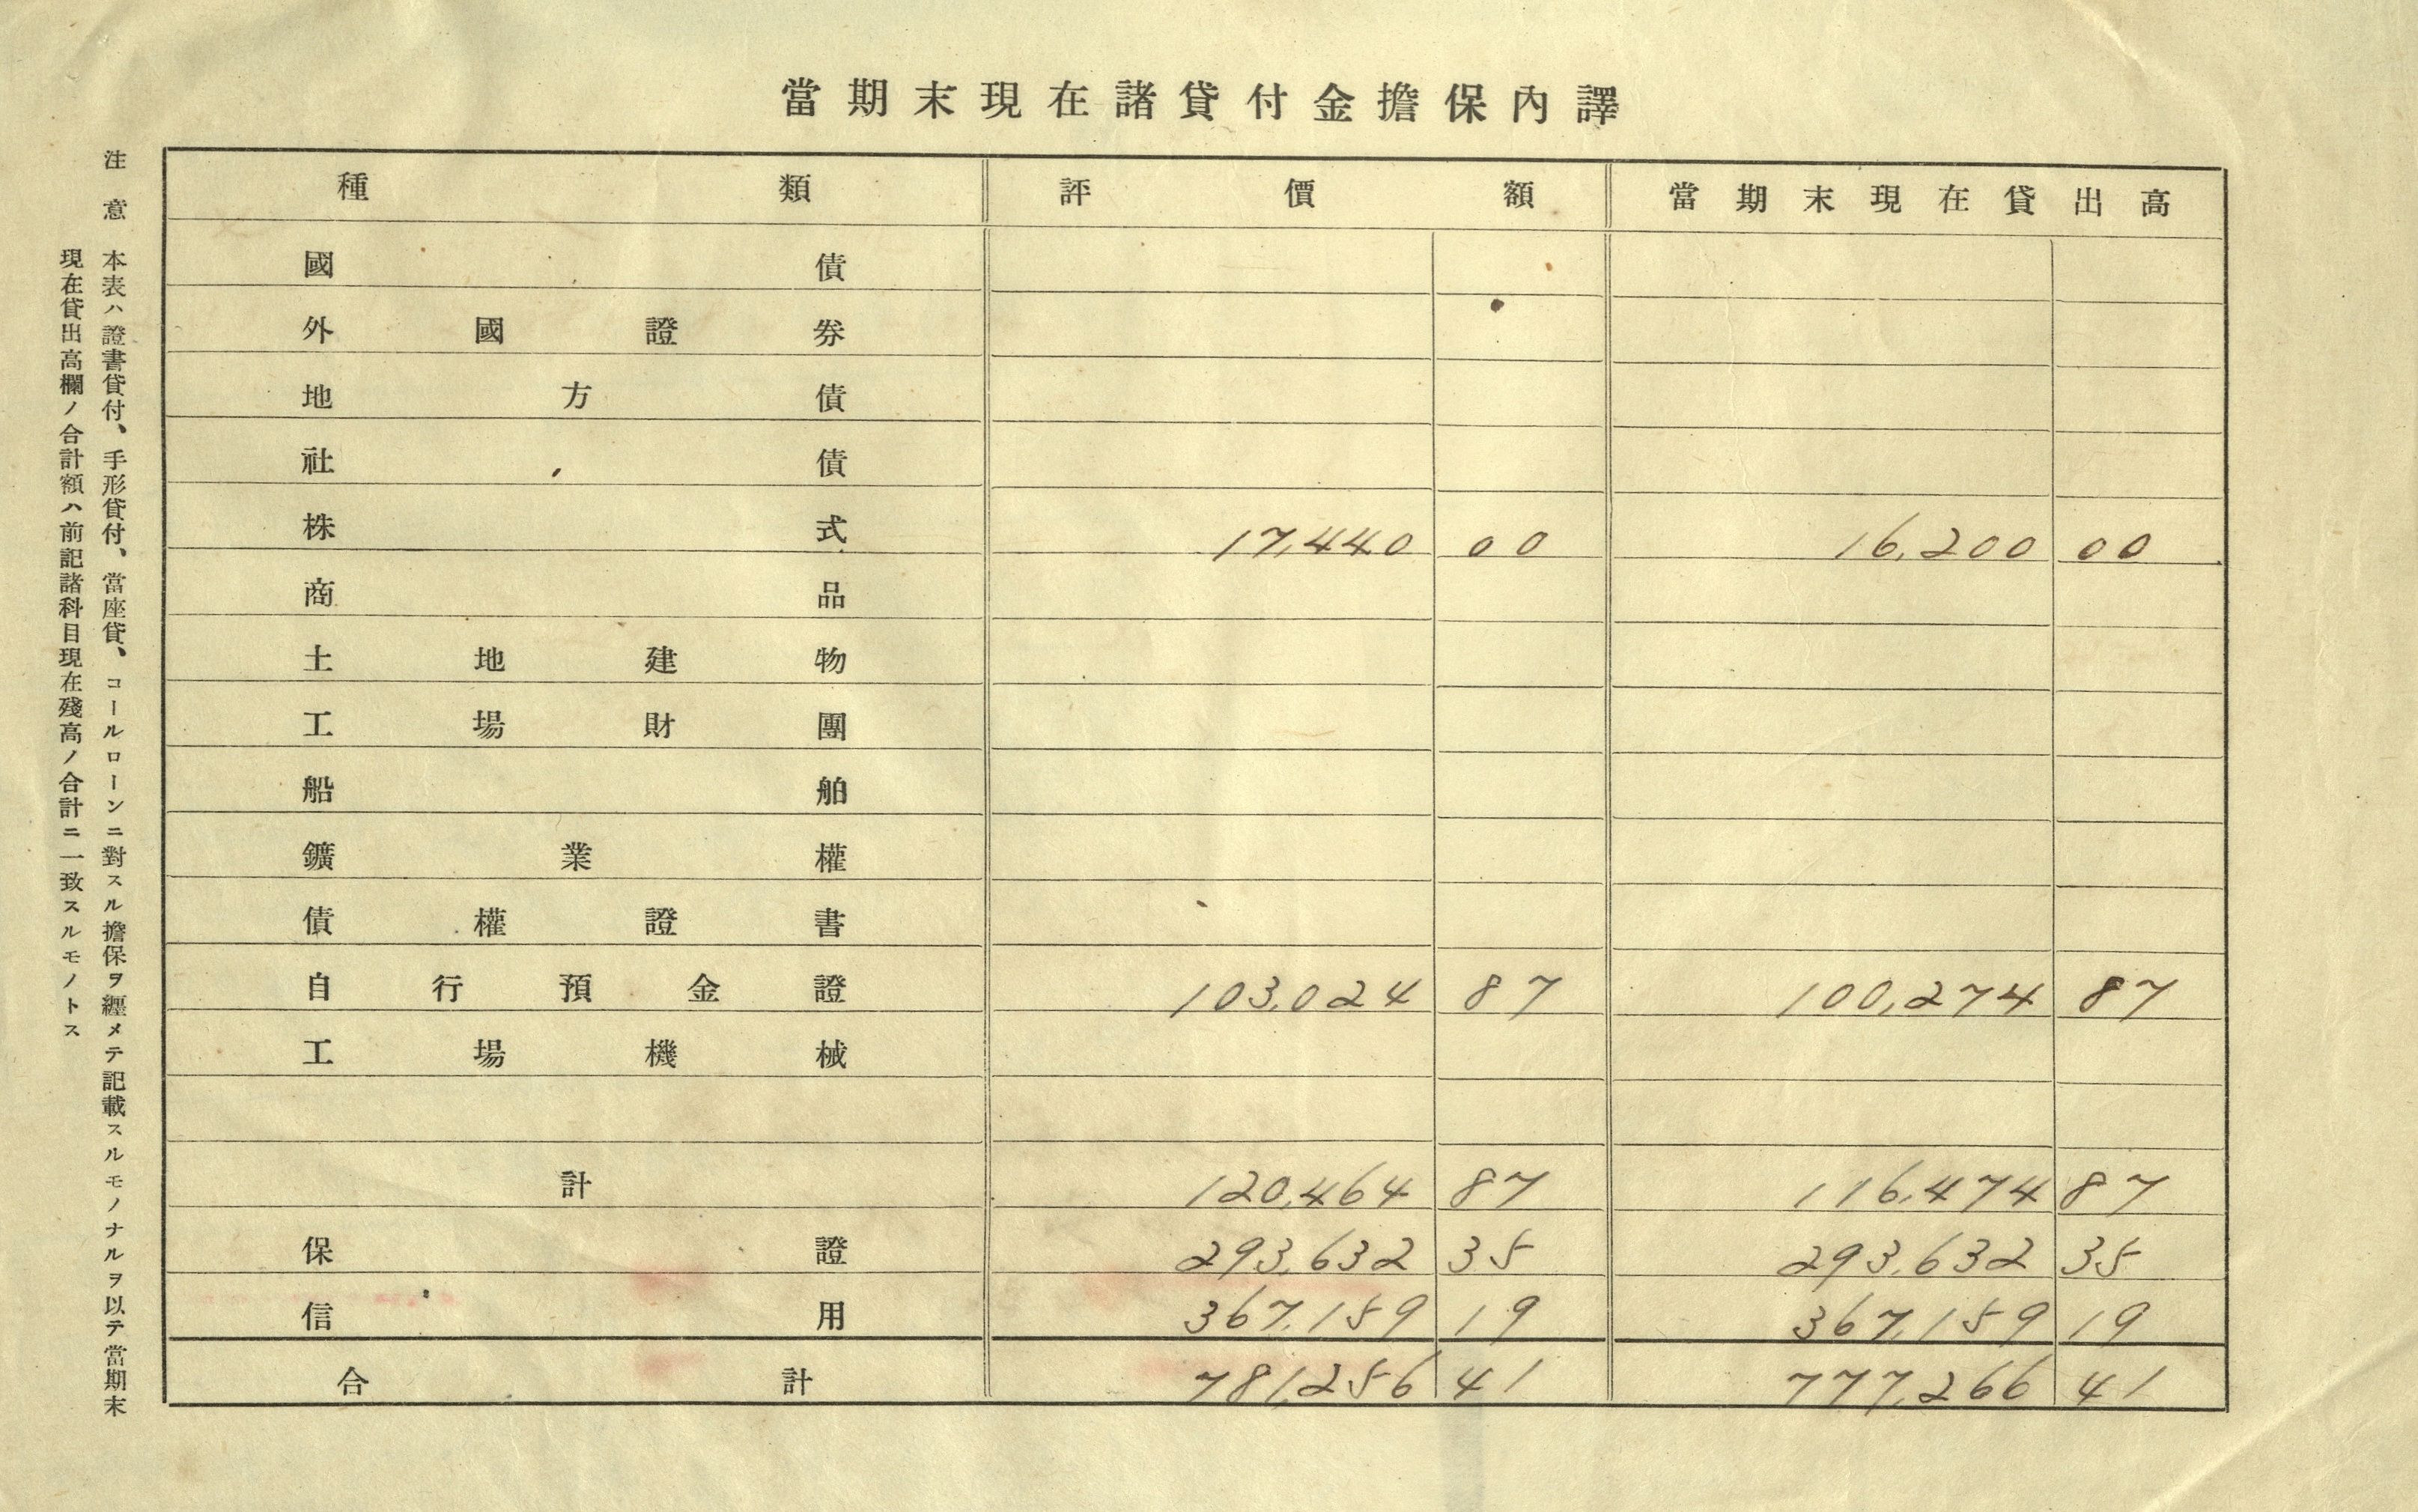 當期末現在諸貸付金擔保內譯
種類 評價額 當期末現在貸出高
國債
外國證券
地方債
社債
株式 17,440 00 16,200 00
商品
土地建物
工場財團
船舶
鑛業權
債權證書
自行預金證 103,024 87 100,274 87
工場機械
計 120,464 87 116,474 87
保證 293,632 35 293,632 35
信用 367,159 19 367,159 19
合計 781,256 41 777,266 41
注意 本表ハ證書貸付、手形貸付、當座貸、コールローンニ對スル擔保ヲ纒メテ記載スルモノナルヲ以テ當期末
現在貸出高欄ノ合計額ハ前記諸科目現在殘高ノ合計ニ一致スルモノトス